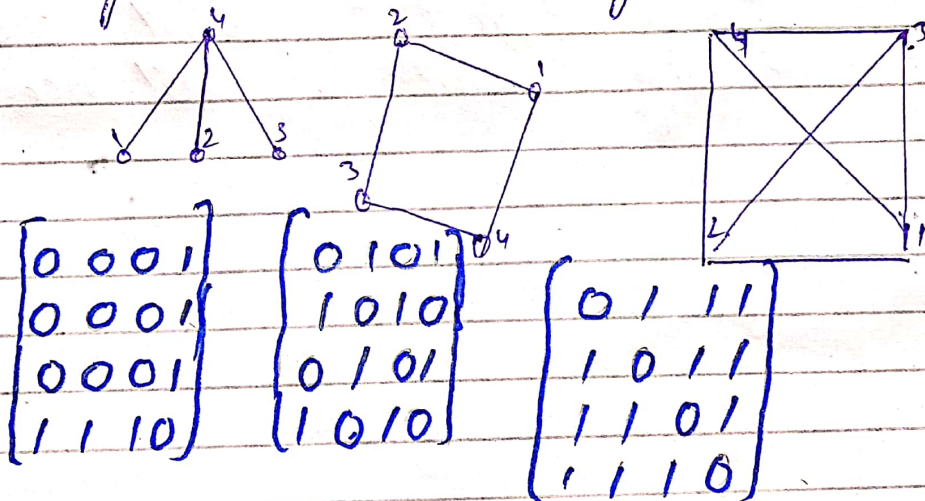 4
1 2 3
2
1
3
4
4 3
2 1
0 0 0 1
0 0 0 1
0 0 0 1
1 1 1 0
0 1 0 1
1 0 1 0
0 1 0 1
1 0 1 0
0 1 1 1
1 0 1 1
1 1 0 1
1 1 1 0